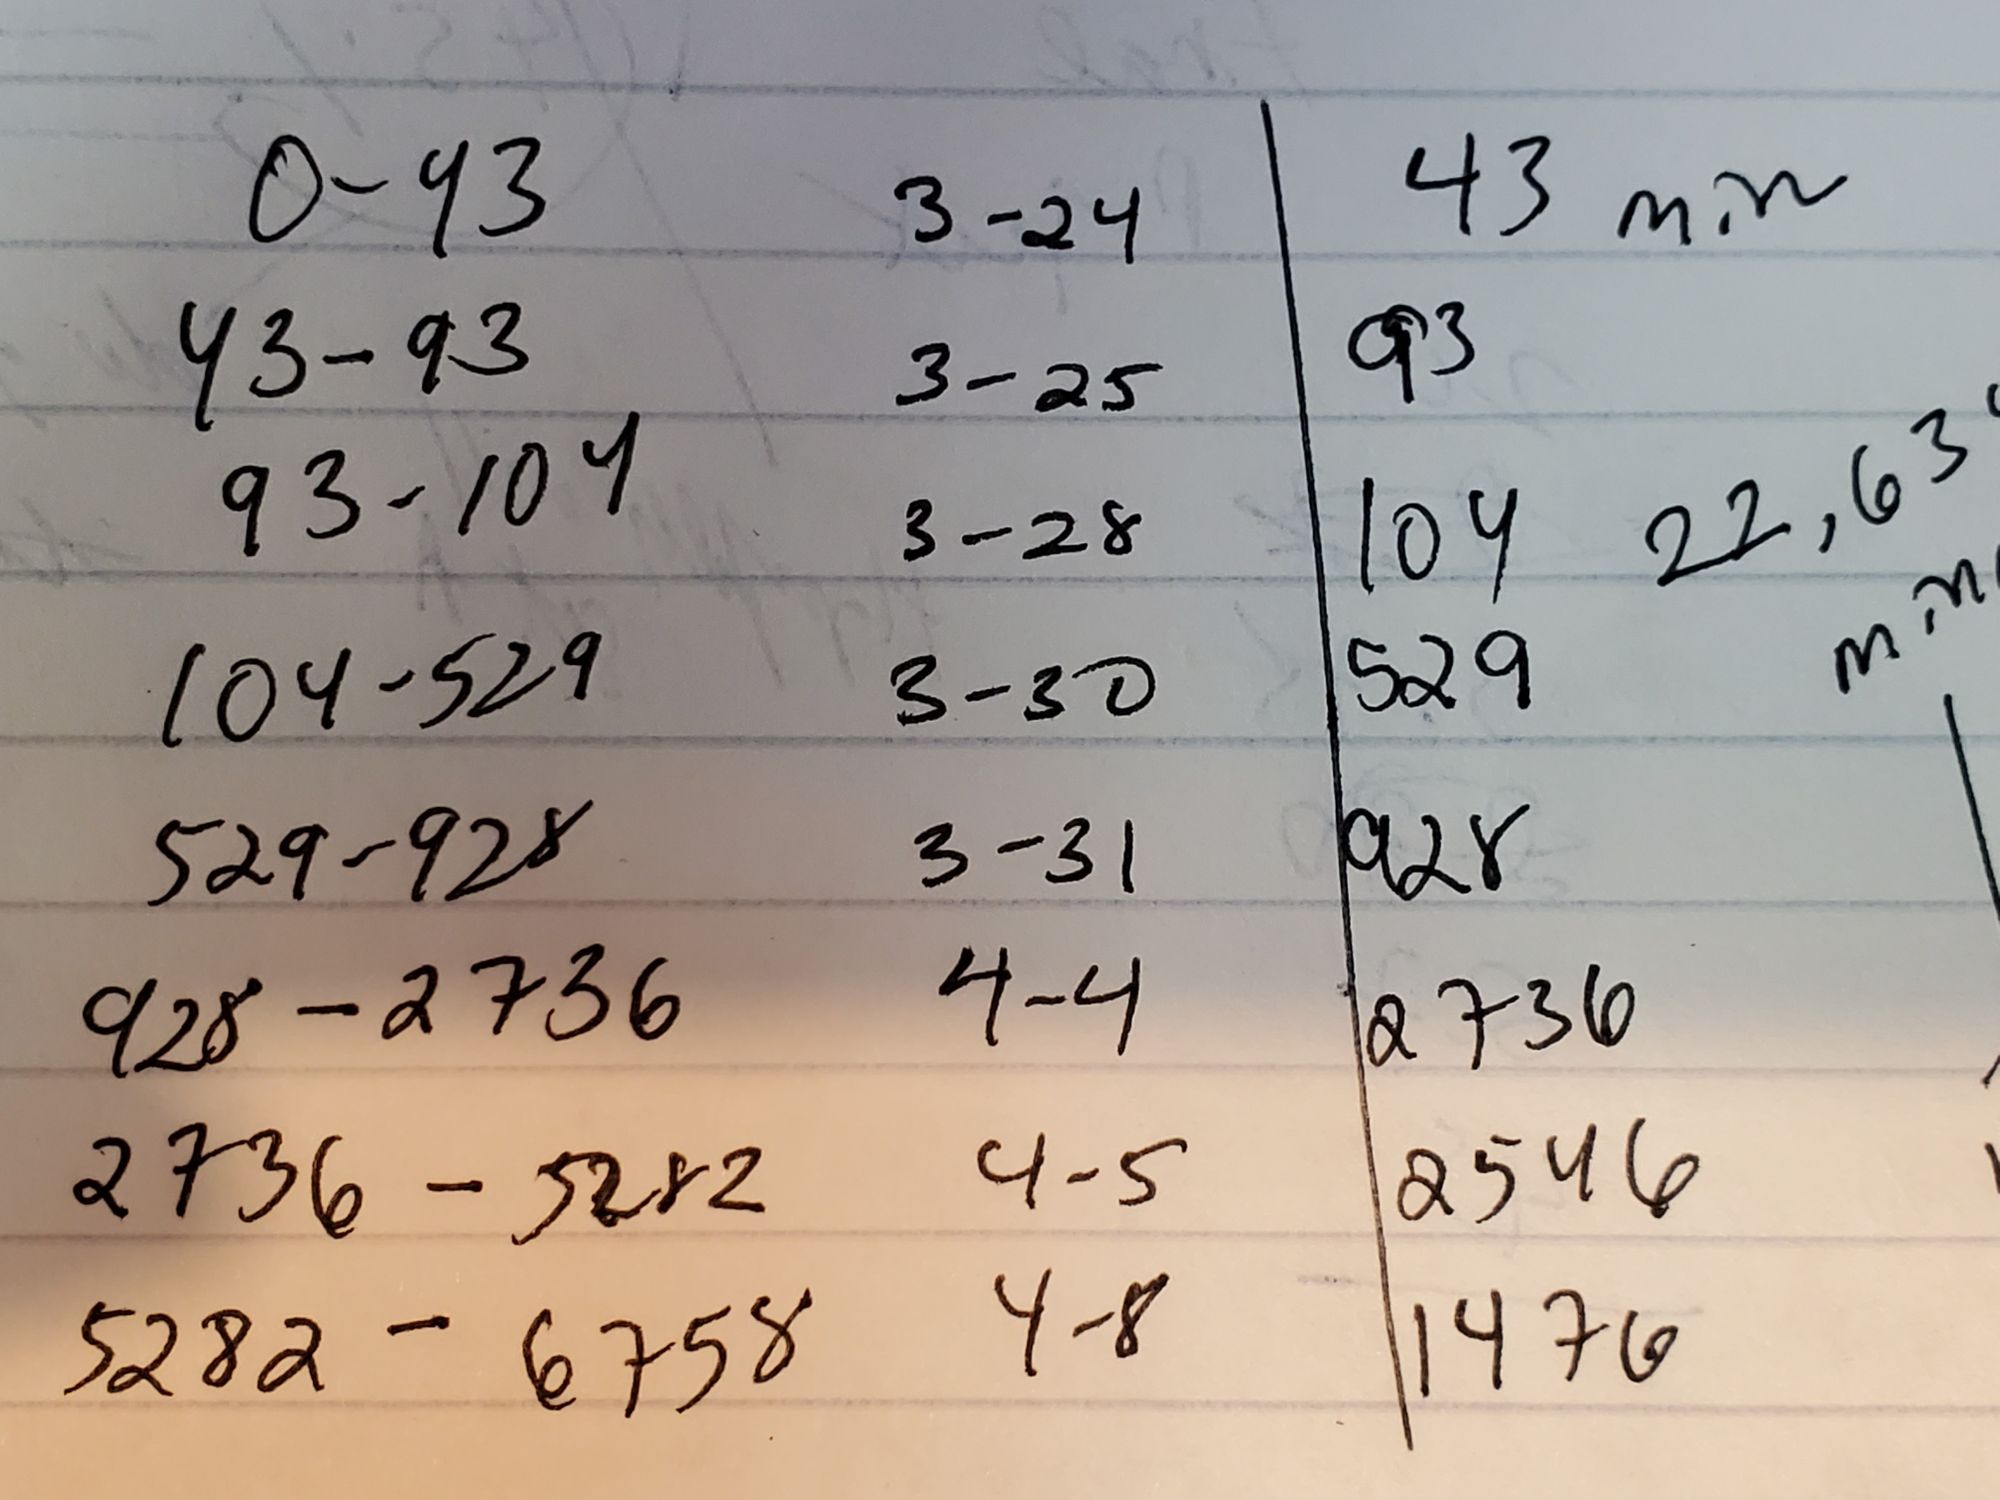 0-43 3-24 43 min
43-93 3-25 93
93-104 3-28 104 22,63
min
104-529 3-30 529
529-928 3-31 928
928-2736 4-4 2736
2736-5282 4-5 2546
5282-6758 4-8 1476